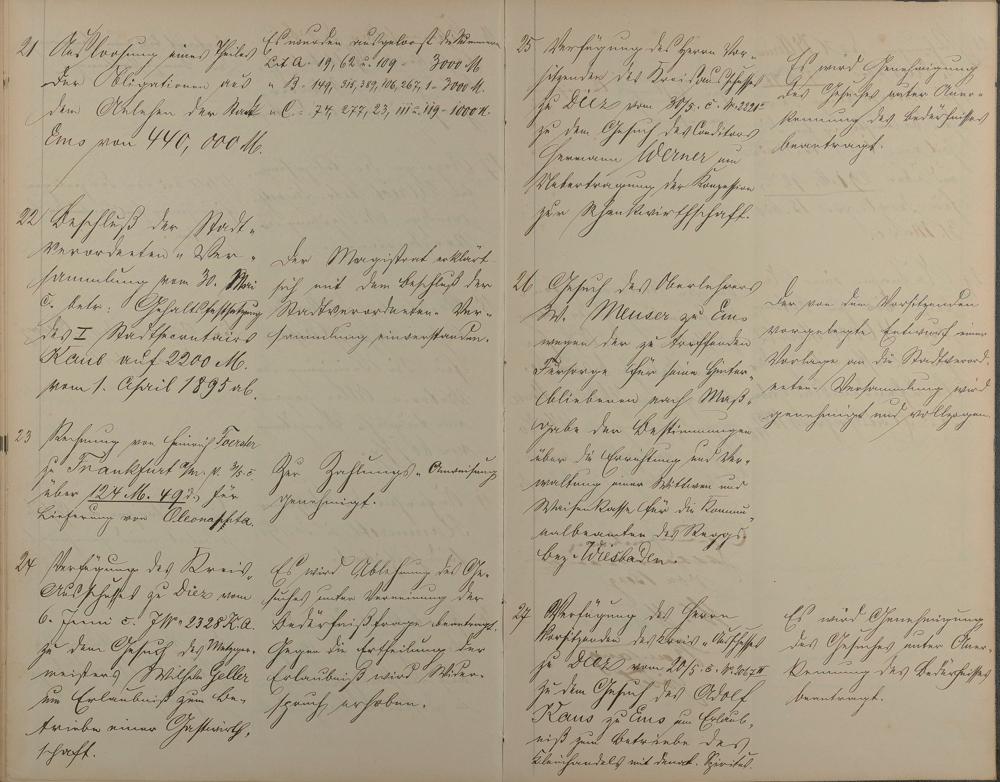 21 Ausloosung eines Theiles
der Obligationen aus
dem Anlehen der Stadt
Ems von 440,000 M.
Es wurden ausgeloost die Nummern
Lit A. 19, 62 u. 109 3000 M
" B. 149, 315, 389, 106, 267, 1 = 3000 M.
" C. = 74, 277, 23, 111 = 119 - 1000 M.
22 Beschluß der Stadt-
verordneten-Ver-
sammlung vom 30. Mai
c. betr: Gehaltsfestsetzung
des I Stadtsecretairs
Kaus auf 2200 M.
vom 1. April 1895 ab.
Der Magistrat erklärt
sich mit dem Beschluß der
Stadtverordneten-Ver-
sammlung einverstanden.
23 Rechnung von Heinrich Foerster
zu Frankfurt a/m. v. 3/5 c.
über 124 M. 49 d. für
Lieferung von Oleonaphta.
Zur Zahlungs-Anweisung
genehmigt.
24 Verfügung des Kreis-
Ausschusses zu Diez vom
6. Juni c. J№ 2328 K.A.
zu dem Gesuch des Metzger-
meisters Wilhelm Geller
um Erlaubniß zum Be-
triebe einer Gastwirth-
schaft.
Es wird Ablehnung des Ge-
suches unter Verneinung der
Bedürfnißfrage beantragt.
Gegen die Ertheilung der
Erlaubniß wird Wider-
spruch erhoben.
25 Verfügung des Herrn Vor-
sitzenden des Kreisausschusses
zu Diez vom 30/5. c.
zu dem Gesuch des Conditors
Hermann Werner um
Uebertragung der Konzession
zur Schankwirthschaft.
Es wird Genehmigung
des Gesuches unter Aner-
kennung des Bedürfnisses
beantragt.
26 Gesuch des Oberlehrers
W. Meuser zu Ems
wegen der zu treffenden
Fürsorge für seine Hinter-
bliebenen nach Maß-
gabe der Bestimmungen
über die Errichtung und Ver-
waltung einer Wittwen und
Waisenkasse für die Kommu-
nalbeamten des Reggs.
Bez. Wiesbaden.
Der von dem Vorsitzenden
vorgelegte Entwurf einer
Vorlage an die Stadtverord-
neten-Versammlung wird
genehmigt und vollzogen.
27 Verfügung des Herrn
Vorsitzenden des Kreis-Ausschusses
zu Diez vom 20/5. c.
zu dem Gesuch des Adolf
Kaus zu Ems um Erlaub-
niß zum Betriebe des
Kleinhandels mit denat. Spiritus.
Es wird Genehmigung
des Gesuches unter Aner-
kennung des Bedürfnisses
beantragt.